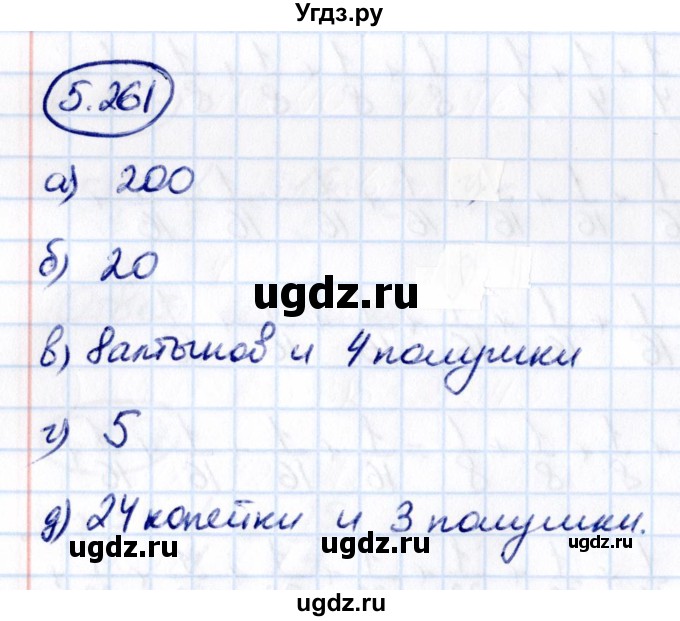 Угдз.ру
5.261
а) 200
б) 20
ugdz.ru
в) 8алтынов и 4 полушки
г) 5
д) 24 копейки и 3 полушки.
ugdz.ru ugdz.ru ugdz.ru
ugdz.ru